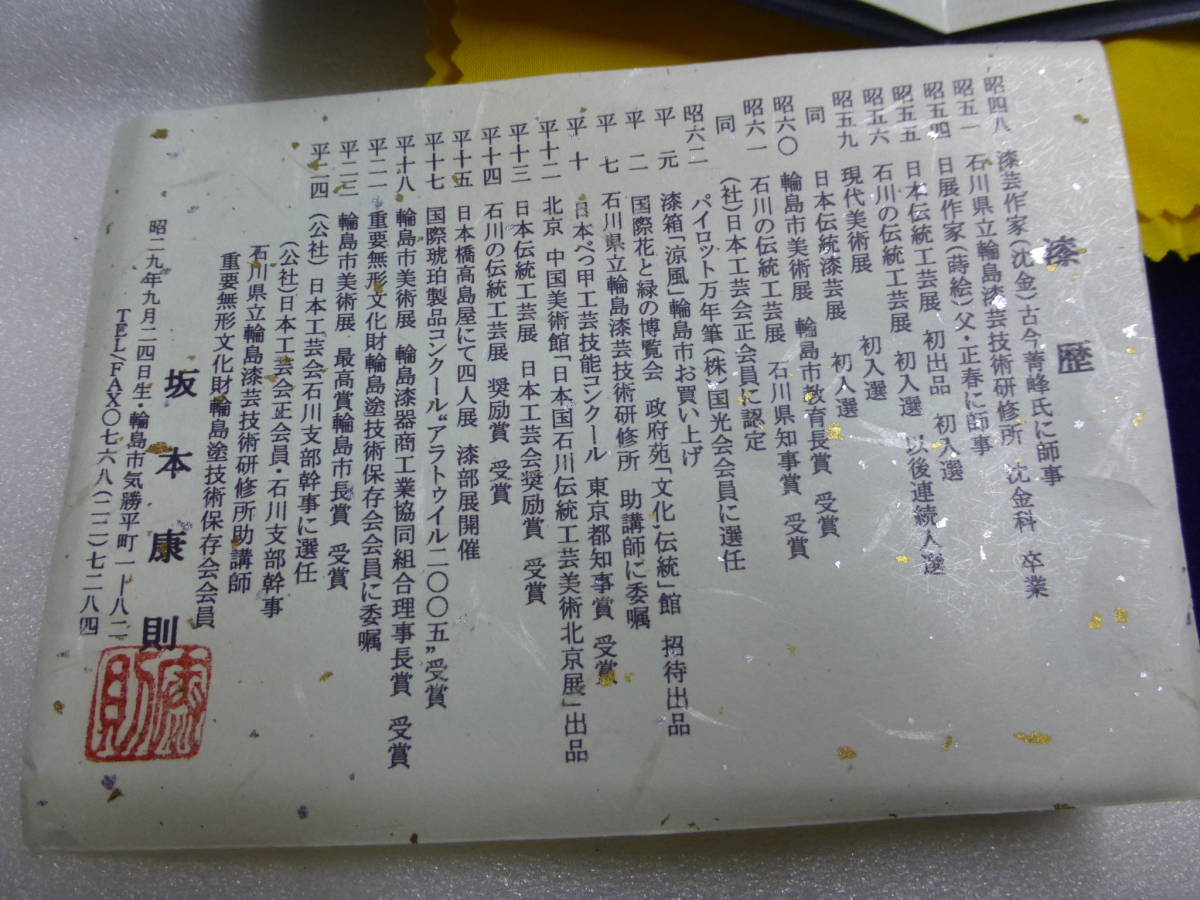 漆歴
昭四八 漆芸作家(沈金)古今菁峰氏に師事
昭五一 石川県立輪島漆芸技術研修所 沈金科 卒業
昭五四 日展作家(蒔絵)父・正春に師事
昭五五 日本伝統工芸展 初出品 初入選
昭五六 石川の伝統工芸展 初入選 以後連続入選
昭五九 現代美術展 初入選
同 日本伝統漆芸展 初入選
昭六〇 輪島市美術展 輪島市教育長賞 受賞
昭六一 石川の伝統工芸展 石川県知事賞 受賞
同 (社)日本工芸会正会員に認定
昭六二 パイロット万年筆(株)国光会会員に選任
平元 漆箱「涼風」輪島市お買い上げ
平二 国際花と緑の博覧会 政府苑「文化・伝統」館 招待出品
平七 石川県立輪島漆芸技術研修所 助講師に委嘱
平十 日本べっ甲工芸技能コンクール 東京都知事賞 受賞
平十二 北京 中国美術館「日本国石川伝統工芸美術北京展」出品
平十三 日本伝統工芸展 日本工芸会奨励賞 受賞
平十四 石川の伝統工芸展 奨励賞 受賞
平十五 日本橋高島屋にて四人展 漆部展開催
平十七 国際琥珀製品コンクール“アラトゥイル二〇〇五”受賞
平十八 輪島市美術展 輪島漆器商工業協同組合理事長賞 受賞
平二一 重要無形文化財輪島塗技術保存会会員に委嘱
平二三 輪島市美術展 最高賞輪島市長賞 受賞
平二四 (公社)日本工芸会石川支部幹事に選任
(公社)日本工芸会正会員・石川支部幹事
石川県立輪島漆芸技術研修所助講師
重要無形文化財輪島塗技術保存会会員
坂本康則
昭二九年九月二四日生・輪島市気勝平町一ー八二
TEL/FAX〇七六八(二二)七二八四
康則